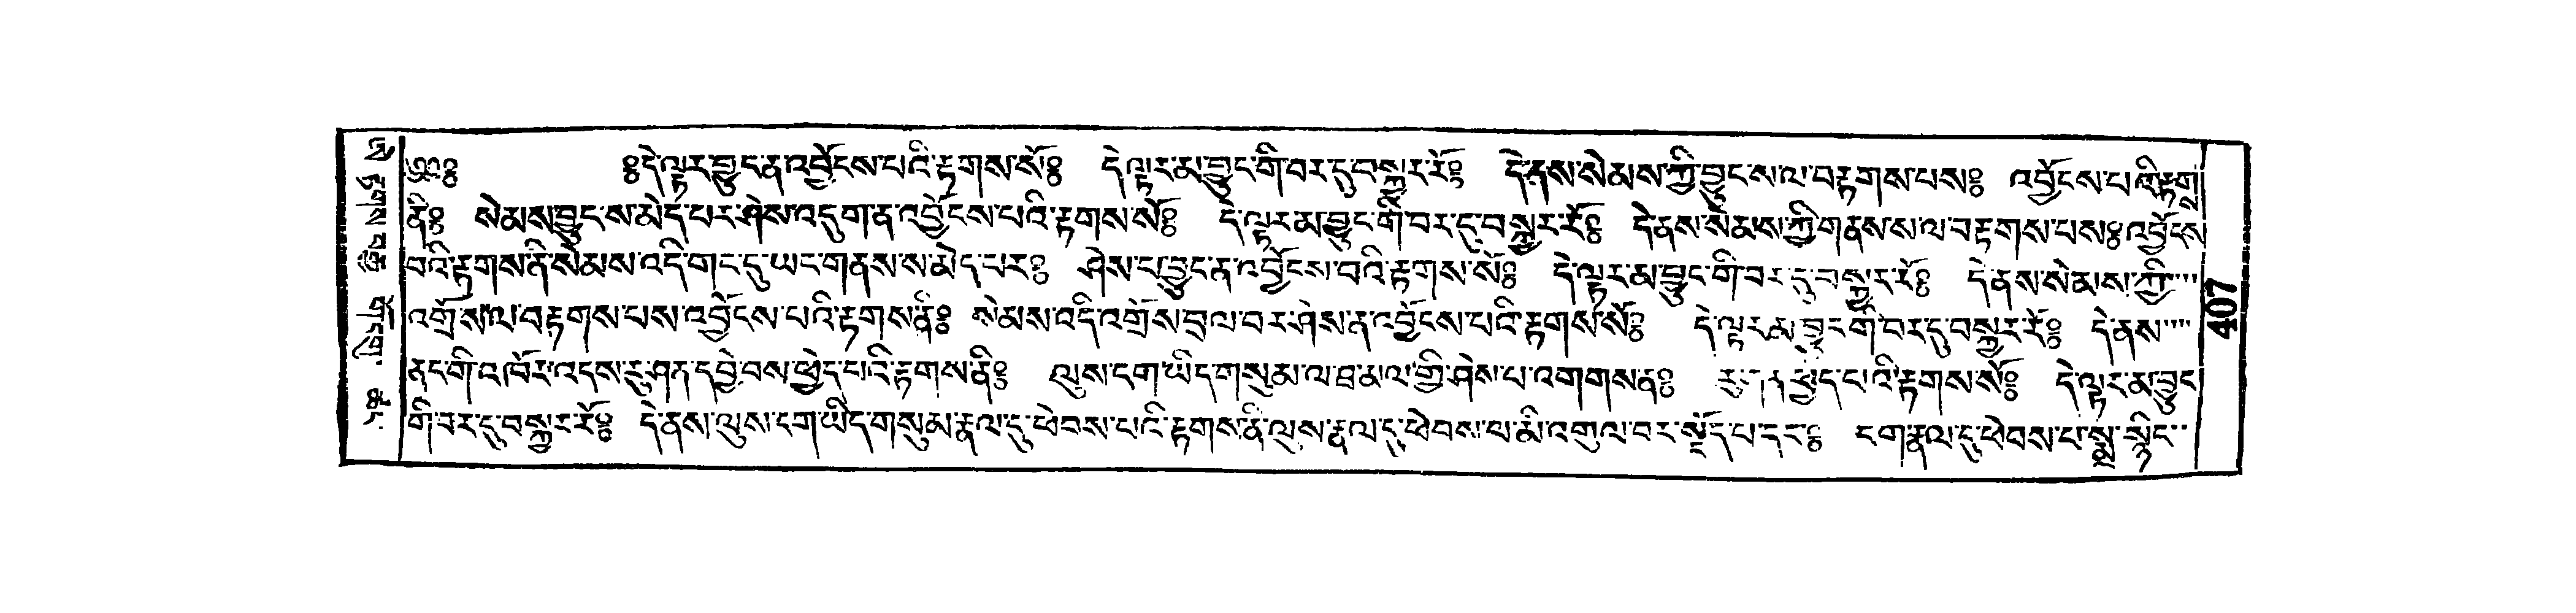 ༄༅༔ ༔དེ་ལྟར་བྱུང་ན་འབྱོངས་པའི་རྟགས་སོ༔ དེ་ལྟར་མ་བྱུང་གི་བར་དུ་བསྐྱར་རོ༔ དེ་ནས་སེམས་ཀྱི་བྱུང་ས་ལ་བརྟགས་པས༔ འབྱོངས་པའི་རྟགས་
ནི༔ སེམས་བྱུང་ས་མེད་པར་ཤེས་འདུག་ན་འབྱོངས་པའི་རྟགས་སོ༔ དེ་ལྟར་མ་བྱུང་གི་བར་དུ་བསྐྱར་རོ༔ དེ་ནས་སེམས་ཀྱི་གནས་ས་ལ་བརྟགས་པས༔ འབྱོངས་
བའི་རྟགས་ནི་སེམས་འདི་གང་དུ་ཡང་གནས་ས་མེད་པར༔ ཤེས་པ་བྱུང་ན་འབྱོངས་བའི་རྟགས་སོ༔ དེ་ལྟར་མ་བྱུང་གི་བར་དུ་བསྐྱར་རོ༔ དེ་ནས་སེམས་ཀྱི་
འགྲོས་ལ་བརྟགས་པས་འབྱོངས་པའི་རྟགས་ནི༔ སེམས་འདི་འགྲོས་བྲལ་བར་ཤེས་ན་འབྱོངས་པའི་རྟགས་སོ༔ དེ་ལྟར་མ་བྱུང་གི་བར་དུ་བསྐྱར་རོ༔ དེ་ནས་
ནང་གི་འཁོར་འདས་རུ་ཤན་དབྱེ་བས་ཕྱེད་པའི་རྟགས་ནི༔ ལུས་ངག་ཡིད་གསུམ་ལ་ཐ་མལ་གྱི་ཤེས་པ་འགགས་ན༔ རུ་ཤན་ཕྱེད་པའི་རྟགས་སོ༔ དེ་ལྟར་མ་བྱུང་
གི་བར་དུ་བསྐྱར་རོ༔ དེ་ནས་ལུས་ངག་ཡིད་གསུམ་རྣལ་དུ་ཕེབས་པའི་རྟགས་ནི་ལུས་རྣལ་དུ་ཕེབས་པ་མི་འགུལ་བར་སྡོད་པ་དང་༔ ངག་རྣལ་དུ་ཕེབས་པ་སྨྲ་སྙིང་
704